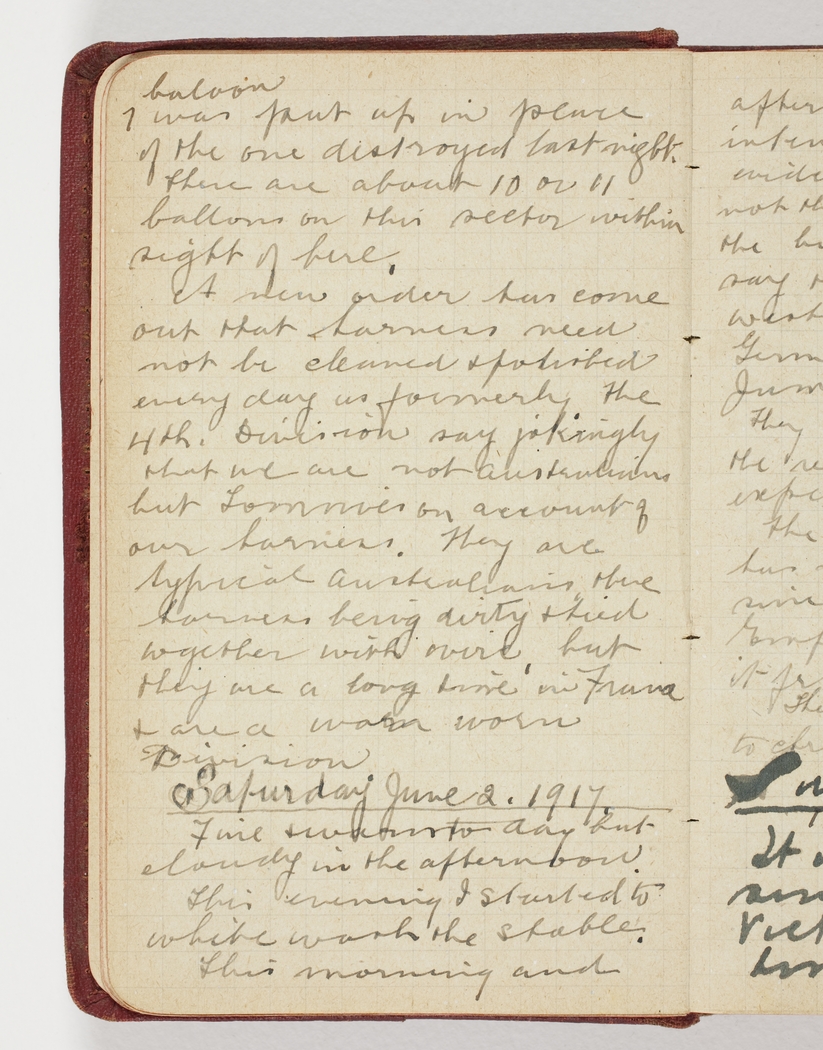 baloon
1 was put up in place
of the one destroyed last night.
There are about 10 or 11
ballons on this sector within
sight of here.
A new order has come
out that harness need
not be cleaned & polished
every day as formerly. The
4th. Division say jokingly
that we are not Australians
but Tommies on account of
our harness. They are
typical Australians, there
harness being dirty & tied
together with wire, but
they are a long time in France
& are a worn worn
Division
Saturday June 2. 1917.
Fine & warm to day but
cloudy in the afternoon.
This evening I started to
white wash the stable.
This morning and
after
inten
evide
not th
the
say
west
Germ
Jun
They
the re
expe
The
has
sinc
it fr
The
to
It
Vict